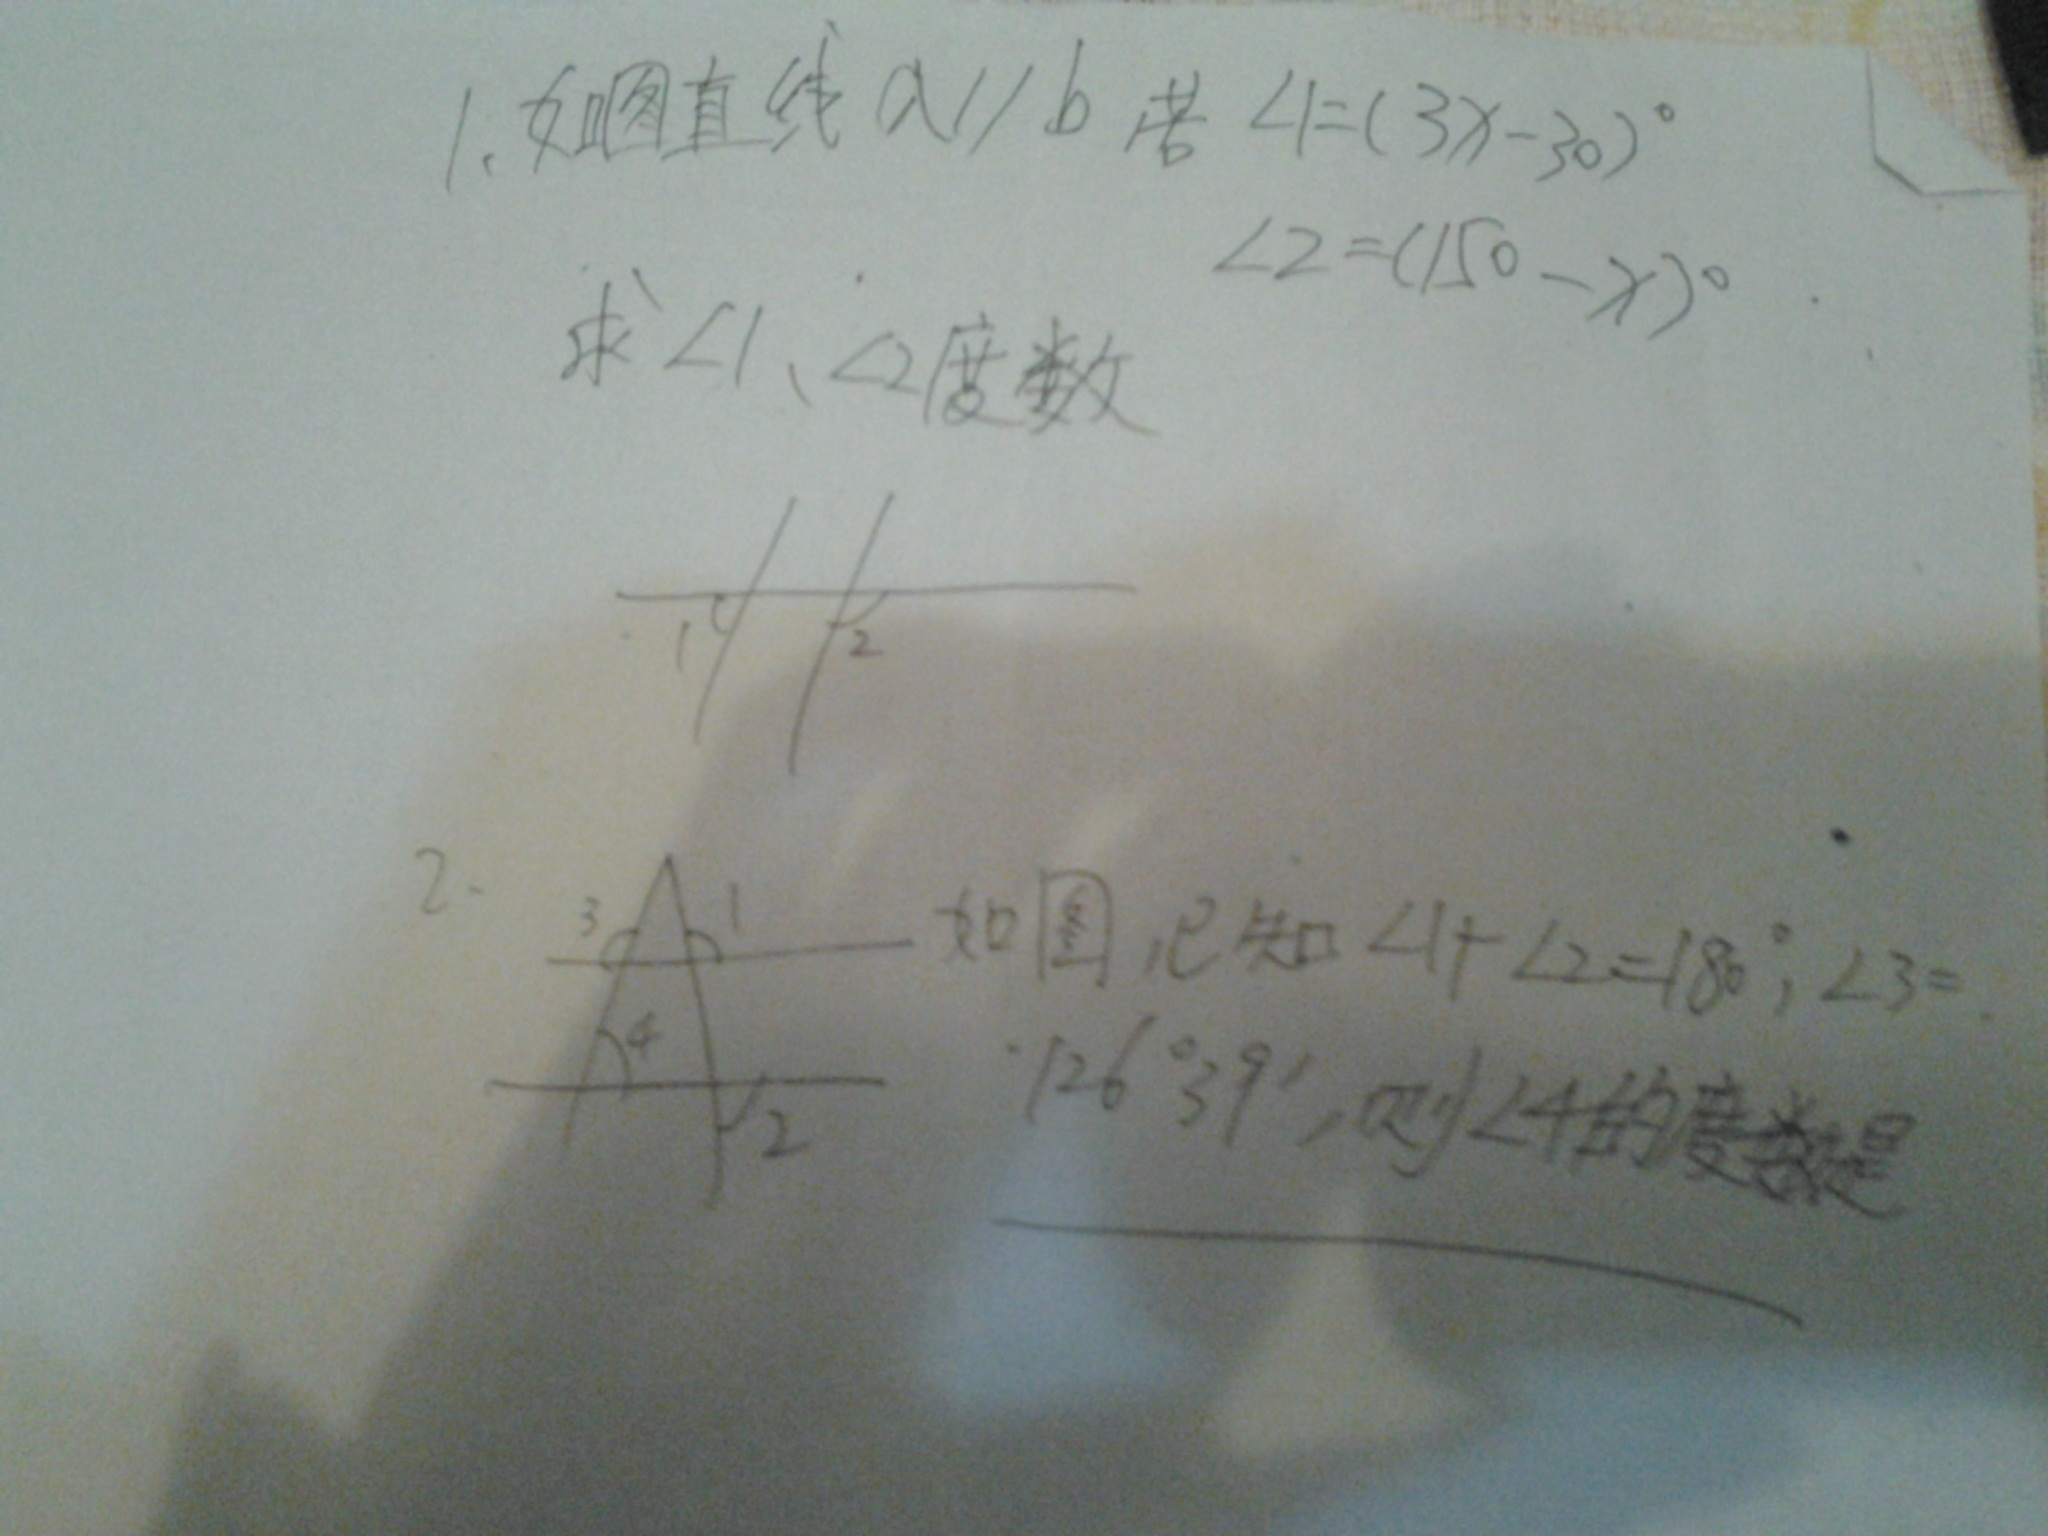 1、如图直线a//b若∠1=(3x-30)°
∠2=(150-x)°
求∠1、∠2度数
1
2
2.
3
1
4
2
如图,已知∠1+∠2=180°,∠3=
126°39′,则∠4的度数是